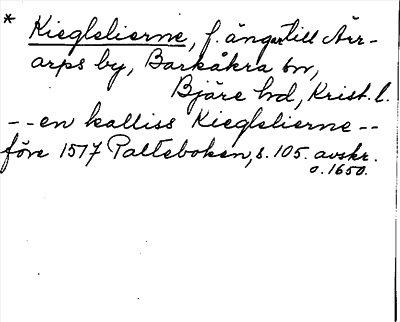 * Kieglelierne, f. ängar till Ärr-
arps by, Barkåkra sn,
Bjäre hd, Krist. l.
-- en kalliss Kieglelierne --
före 1517 Palteboken, s. 105. avskr.
o. 1650.